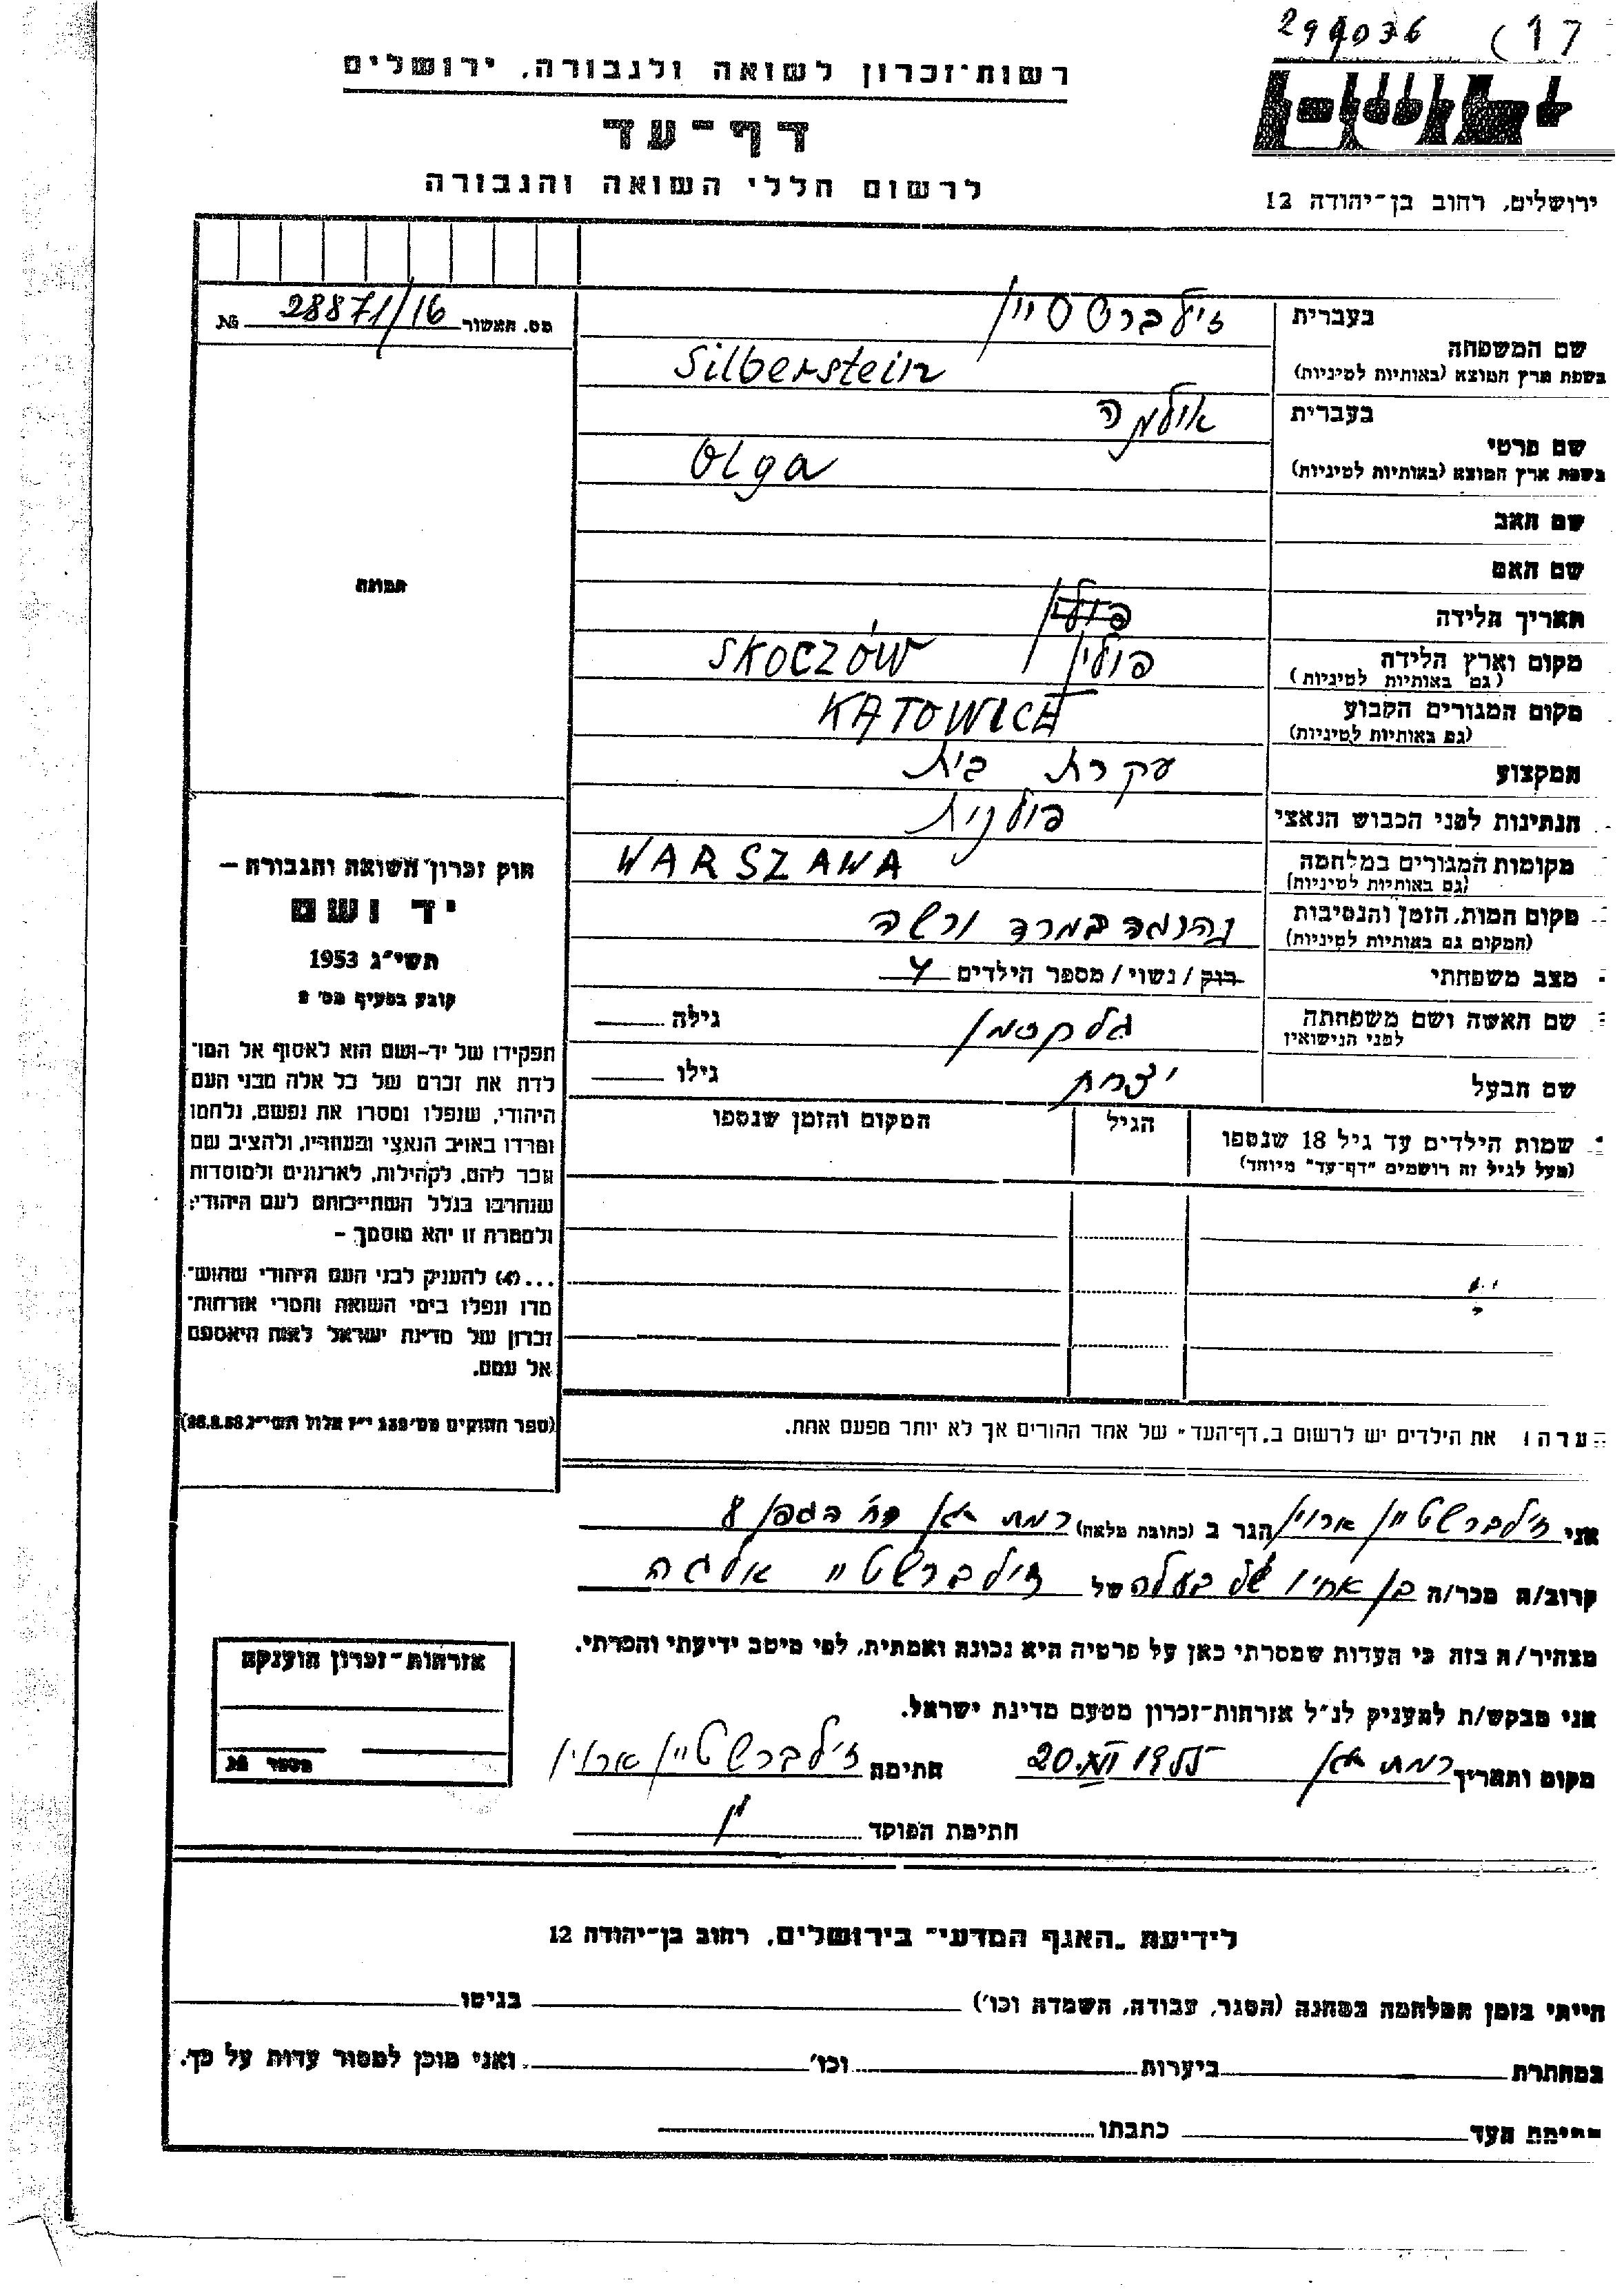 299036 (17
רשות־זכרון לשואה ולגבורה, ירושלים
יד ושם
דף־עד
לרשום חללי השואה והגבורה
ירושלים, רחוב בן־יהודה 12
מס. האשור № 28871/16
בעברית זילברשטיין
שם המשפחה
בשפת ארץ המוצא (באותיות לטיניות) Silberstein
בעברית אולגה
שם פרטי
בשפת ארץ המוצא (באותיות לטיניות) Olga
שם האב
שם האם
תאריך הלידה
מקום וארץ הלידה פולין SKOCZÓW
(גם באותיות לטיניות)
מקום המגורים הקבוע KATOWICE
(גם באותיות לטיניות)
המקצוע עקרת בית
הנתינות לפני הכבוש הנאצי פולנית
מקומות המגורים במלחמה WARSZAWA
(גם באותיות לטיניות)
מקום המות, הזמן והנסיבות נהרגה במרד ורשה
(המקום גם באותיות לטיניות)
מצב משפחתי רוק / נשוי / מספר הילדים 4
שם האשה ושם משפחתה גילה
לפני הנישואין
שם הבעל יצחק גילו
שמות הילדים עד גיל 18 שנספו הגיל המקום והזמן שנספו
(מעל לגיל זה רושמים "דף־עד" מיוחד)
הערה: את הילדים יש לרשום ב"דף־העד" של אחד ההורים אך לא יותר מפעם אחת.
תמונה
חוק זכרון השואה והגבורה –
יד ושם
תשי"ג 1953
קובע בסעיף מס' 2
תפקידו של יד־ושם הוא לאסוף אל המו־
לדת את זכרם של כל אלה מבני העם
היהודי, שנפלו ומסרו את נפשם, נלחמו
ומרדו באויב הנאצי ובעוזריו, ולהציב שם
וזכר להם, לקהילות, לארגונים ולמוסדות
שנחרבו בגלל השתייכותם לעם היהודי;
ולמטרה זו יהא מוסמך –
...(4) להעניק לבני העם היהודי שהוש־
מדו ונפלו בימי השואה והמרי אזרחות־
זכרון של מדינת ישראל לאות היאספם
אל עמם.
(ספר החוקים מס' 132 י"ז אלול תשי"ג 28.8.53)
אני זילברשטיין ארוין הגר ב (כתובת מלאה) רמת גן רח' הגפן 8
קרוב/ה מכר/ה בן אחיו של בעלה של זילברשטיין אלגה
מצהיר/ה בזה כי העדות שמסרתי כאן על פרטיה היא נכונה ואמתית, לפי מיטב ידיעתי והכרתי.
אני מבקש/ת להעניק לנ"ל אזרחות־זכרון מטעם מדינת ישראל.
מקום ותאריך רמת גן 1955 20. חתימה זילברשטיין ארוין
חתימת הפוקד
אזרחות־זכרון הוענקה
מספר №
לידיעת "האגף המדעי" בירושלים, רחוב בן־יהודה 12
הייתי בזמן המלחמה במחנה (הסגר, עבודה, השמדה וכו') בגיטו
במחתרת ביערות וכו' ואני מוכן למסור עדות על כך.
חתימת העד כתבתו